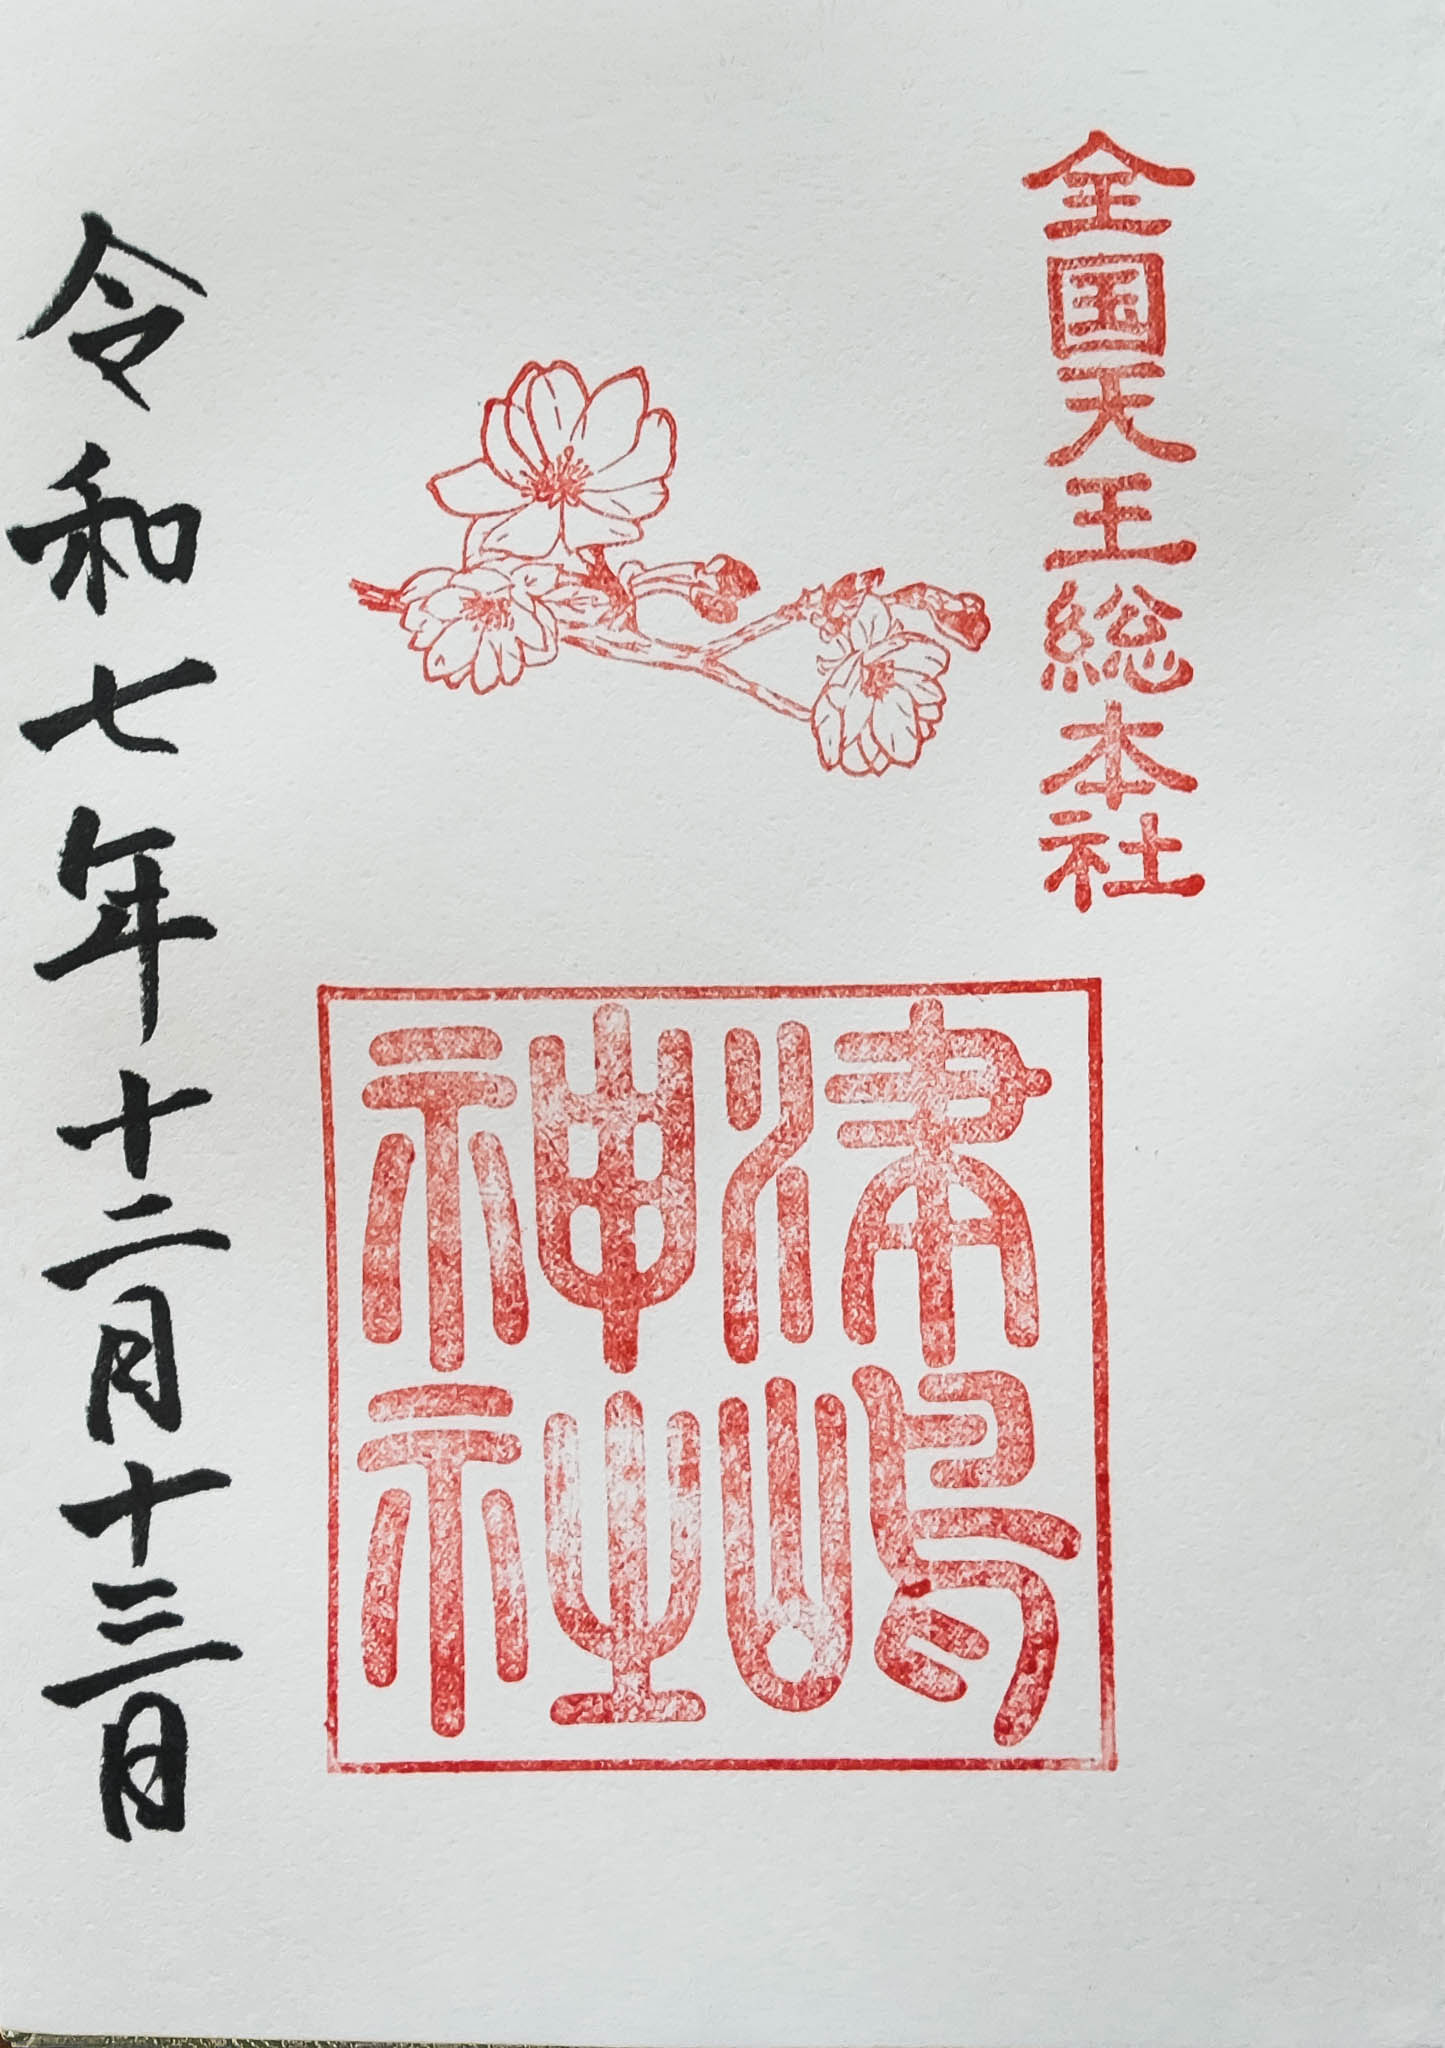 全国天王総本社
津嶋
神社
令和七年十二月十三日